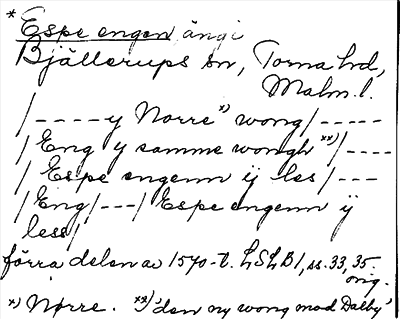 * Espe engen äng i
Bjällerups sn, Torna hd,
Malm.l.
/----y Norre *) wong/-----
/Eng y samme wongh **)/----
/Espe engenn ij les/---
/Eng/---/Espe engenn ij
less/
förra delen av 1570-t. LSLB1, ss. 33, 35.
orig.
*) Nørre. **) 'den ny wong mod Dalby'